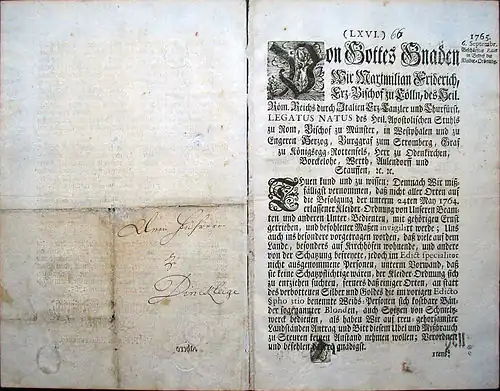 (LXVI.) 66
1765
6. Septembr.
Von Gottes Gnaden
Wir Maximilian Friderich,
Erz-Bischof zu Cölln, des Heil.
Röm. Reichs durch Italien Erz-Canzler und Churfürst,
LEGATUS NATUS des Heil. Apostolischen Stuhls
zu Rom, Bischof zu Münster, in Westphalen und zu
Engeren Herzog, Burggraf zum Stromberg, Graf
zu Königsegg-Rottenfels, Herr zu Odenkirchen,
Borckelohe, Werth, Aulendorff und
Stauffen, ꝛc. ꝛc.
Thuen kund und zu wissen: Demnach Wir miß-
fälligst vernommen, daß nicht aller Orten auf
die Befolgung der unterm 24ten May 1764.
erlassener Kleider-Ordnung von Unseren Beam-
ten und anderen Unter-Bedienten, mit gehörigen Ernst
getrieben, und befohlener Maßen invigilirt werde; Uns
auch ins besondere vorgetragen worden, daß viele auf dem
Lande, besonders auf Kirchhöfen wohnende, und andere
von der Schatzung befreiete, jedoch im Edict specialiter
nicht ausgenommene Personen, unterm Vorwand, daß
sie keine Schatzpflichtige wären, der Kleider-Ordnung sich
zu entziehen suchten, ferners daß einiger Orten, an statt
des verbottenen Silber und Goldes die im vorigen Edicto
§pho 1tio benennte Weibs-Personen sich kostbare Bän-
der sogenannter Blonden, auch Spitzen von Schmelz-
werck bedienen, als haben Wir auf treu-gehorsamster
Landständen Antrag und Bitt diesem Übel und Mißbrauch
zu Steuren keinen Anstand nehmen wollen; Verordnen
und befehlen gnädigst.
1tens
Dincklage